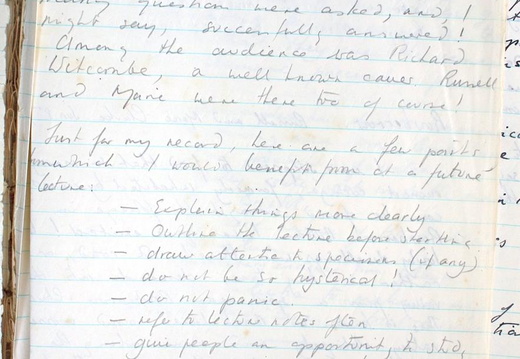 many question were asked, and, I
might say, successfully answered!
Among the audience was Richard
Witcombe, a well known caver. Russell
and Marie were there too of course!
Just for my record, here are a few points
which I would benefit from at a future
lecture:
— Explain things more clearly
— Outline the lecture before starting
— draw attention to specimens (if any)
— do not be so hysterical!
— do not panic.
— refer to lecture notes often
— give people an opportunity to